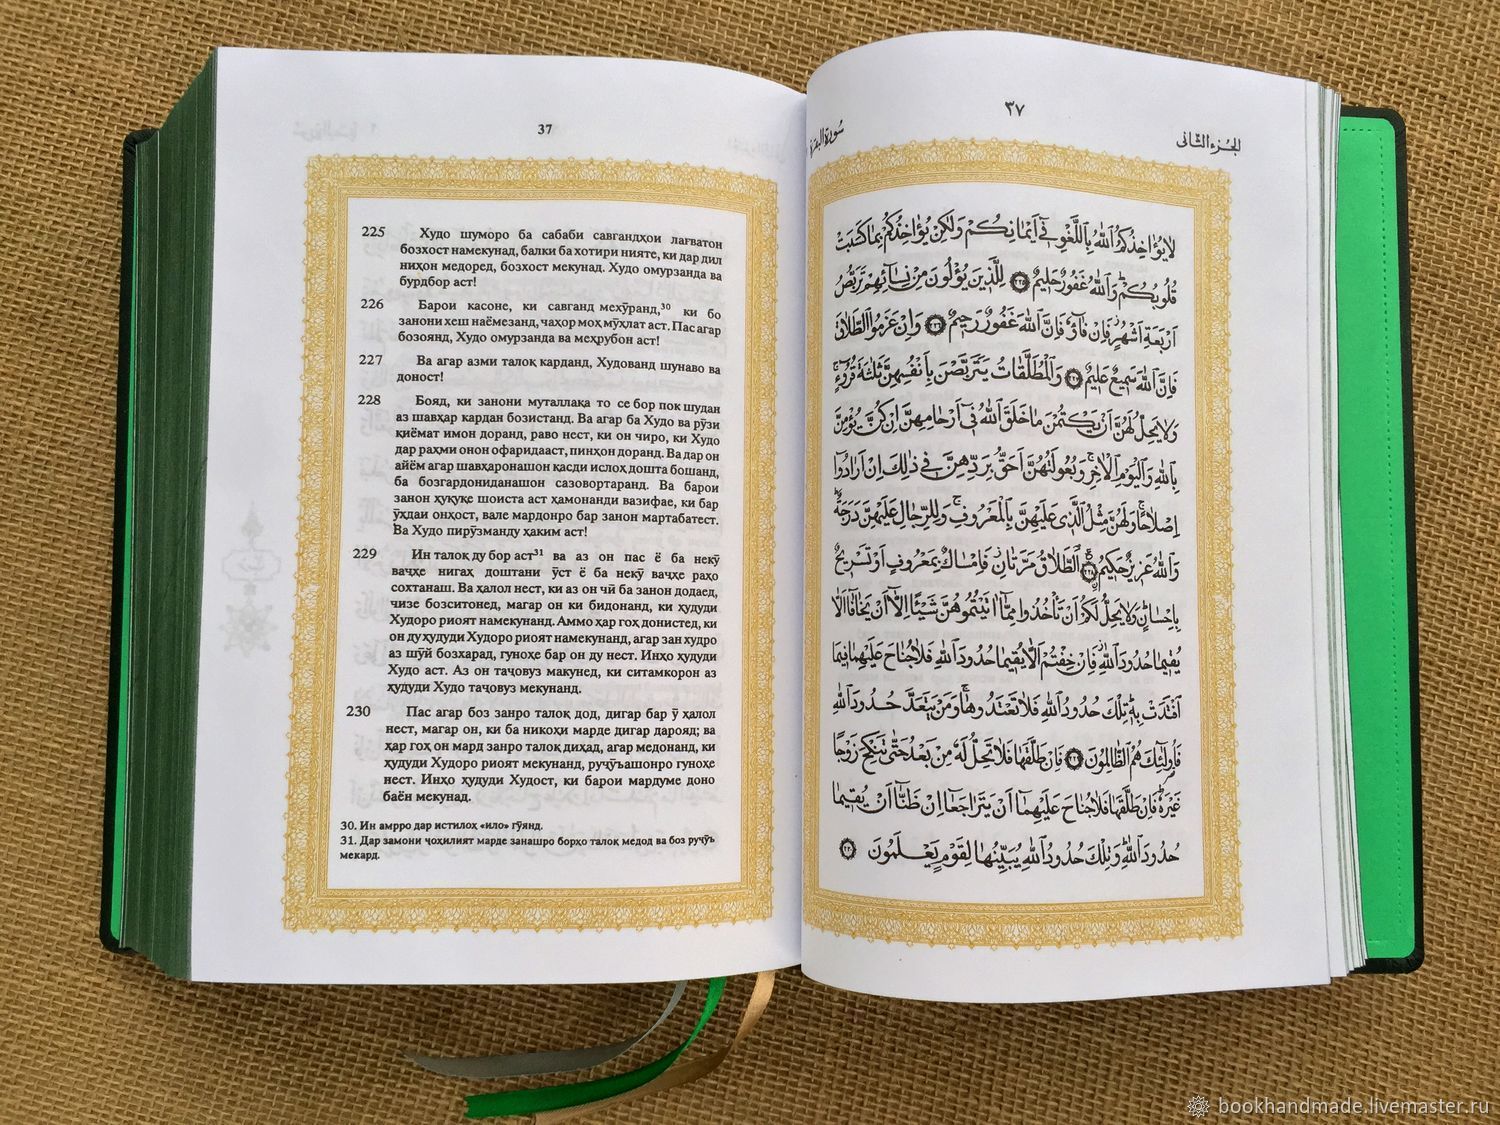 37
225 Худо шуморо ба сабаби савгандҳои лағватон
бозхост намекунад, балки ба хотири нияте, ки дар дил
ниҳон медоред, бозхост мекунад. Худо омурзанда ва
бурдбор аст!
226 Барои касоне, ки савганд мехӯранд,³⁰ ки бо
занони хеш наёмезанд, чаҳор моҳ мӯҳлат аст. Пас агар
бозоянд, Худо омурзанда ва меҳрубон аст!
227 Ва агар азми талоқ карданд, Худованд шунаво ва
доност!
228 Бояд, ки занони муталлақа то се бор пок шудан
аз шавҳар кардан бозистанд. Ва агар ба Худо ва рӯзи
қиёмат имон доранд, раво нест, ки он чиро, ки Худо
дар раҳми онон офаридааст, пинҳон доранд. Ва дар он
айём агар шавҳаронашон қасди ислоҳ дошта бошанд,
ба бозгардониданашон сазовортаранд. Ва барои
занон ҳуқуқе шоиста аст ҳамонанди вазифае, ки бар
ӯҳдаи онҳост, вале мардонро бар занон мартабатест.
Ва Худо пирӯзманду ҳаким аст!
229 Ин талоқ ду бор аст³¹ ва аз он пас ё ба некӯ
ваҷҳе нигаҳ доштани ӯст ё ба некӯ ваҷҳе раҳо
сохтанаш. Ва ҳалол нест, ки аз он чӣ ба занон додаед,
чизе бозситонед, магар он ки бидонанд, ки ҳудуди
Худоро риоят намекунанд. Аммо ҳар гоҳ донистед, ки
он ду ҳудуди Худоро риоят намекунанд, агар зан худро
аз шӯй бозхарад, гуноҳе бар он ду нест. Инҳо ҳудуди
Худо аст. Аз он таҷовуз макунед, ки ситамкорон аз
ҳудуди Худо таҷовуз мекунанд.
230 Пас агар боз занро талоқ дод, дигар бар ӯ ҳалол
нест, магар он, ки ба никоҳи марде дигар дарояд; ва
ҳар гоҳ он мард занро талоқ диҳад, агар медонанд, ки
ҳудуди Худоро риоят мекунанд, руҷӯъашонро гуноҳе
нест. Инҳо ҳудуди Худост, ки барои мардуме доно
баён мекунад.
30. Ин амрро дар истилоҳ «ило» гӯянд.
31. Дар замони ҷоҳилият марде занашро борҳо талоқ медод ва боз руҷӯъ
мекард.
٣٧
سُورَةُ البَقَرَةِ الجُزءُ الثَّانى
لَا يُؤَاخِذُكُمُ ٱللَّهُ بِٱللَّغْوِ فِىٓ أَيْمَٰنِكُمْ وَلَٰكِن يُؤَاخِذُكُم بِمَا كَسَبَتْ
قُلُوبُكُمْ ۗ وَٱللَّهُ غَفُورٌ حَلِيمٌ ٢٢٥ لِّلَّذِينَ يُؤْلُونَ مِن نِّسَآئِهِمْ تَرَبُّصُ
أَرْبَعَةِ أَشْهُرٍ ۖ فَإِن فَآءُو فَإِنَّ ٱللَّهَ غَفُورٌ رَّحِيمٌ ٢٢٦ وَإِنْ عَزَمُوا۟ ٱلطَّلَٰقَ
فَإِنَّ ٱللَّهَ سَمِيعٌ عَلِيمٌ ٢٢٧ وَٱلْمُطَلَّقَٰتُ يَتَرَبَّصْنَ بِأَنفُسِهِنَّ ثَلَٰثَةَ قُرُوٓءٍ ۚ
وَلَا يَحِلُّ لَهُنَّ أَن يَكْتُمْنَ مَا خَلَقَ ٱللَّهُ فِىٓ أَرْحَامِهِنَّ إِن كُنَّ يُؤْمِنَّ
بِٱللَّهِ وَٱلْيَوْمِ ٱلْءَاخِرِ ۚ وَبُعُولَتُهُنَّ أَحَقُّ بِرَدِّهِنَّ فِى ذَٰلِكَ إِنْ أَرَادُوٓا۟
إِصْلَٰحًا ۚ وَلَهُنَّ مِثْلُ ٱلَّذِى عَلَيْهِنَّ بِٱلْمَعْرُوفِ ۚ وَلِلرِّجَالِ عَلَيْهِنَّ دَرَجَةٌ ۗ
وَٱللَّهُ عَزِيزٌ حَكِيمٌ ٢٢٨ ٱلطَّلَٰقُ مَرَّتَانِ ۖ فَإِمْسَاكٌۢ بِمَعْرُوفٍ أَوْ تَسْرِيحٌۢ
بِإِحْسَٰنٍ ۗ وَلَا يَحِلُّ لَكُمْ أَن تَأْخُذُوا۟ مِمَّآ ءَاتَيْتُمُوهُنَّ شَيْـًٔا إِلَّآ أَن يَخَافَآ أَلَّا
يُقِيمَا حُدُودَ ٱللَّهِ ۖ فَإِنْ خِفْتُمْ أَلَّا يُقِيمَا حُدُودَ ٱللَّهِ فَلَا جُنَاحَ عَلَيْهِمَا فِيمَا
ٱفْتَدَتْ بِهِۦ ۗ تِلْكَ حُدُودُ ٱللَّهِ فَلَا تَعْتَدُوهَا ۚ وَمَن يَتَعَدَّ حُدُودَ ٱللَّهِ
فَأُو۟لَٰٓئِكَ هُمُ ٱلظَّٰلِمُونَ ٢٢٩ فَإِن طَلَّقَهَا فَلَا تَحِلُّ لَهُۥ مِنۢ بَعْدُ حَتَّىٰ تَنكِحَ زَوْجًا
غَيْرَهُۥ ۗ فَإِن طَلَّقَهَا فَلَا جُنَاحَ عَلَيْهِمَآ أَن يَتَرَاجَعَآ إِن ظَنَّآ أَن يُقِيمَا
حُدُودَ ٱللَّهِ ۗ وَتِلْكَ حُدُودُ ٱللَّهِ يُبَيِّنُهَا لِقَوْمٍ يَعْلَمُونَ ٢٣٠
bookhandmade.livemaster.ru